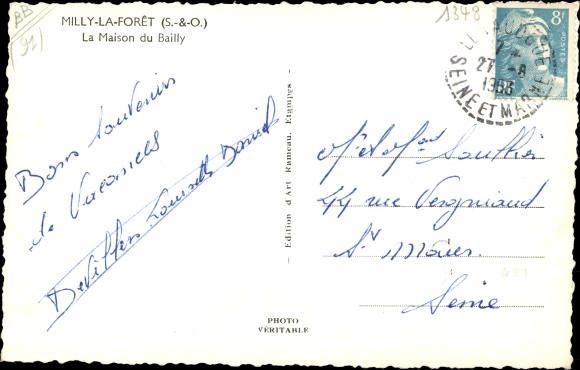 BB
(91)
MILLY-LA-FORÊT (S.-&-O.)
La Maison du Bailly
1348
8F
POSTES
27 - 8
1953
SEINE ET MARNE
Bons Souvenirs
de Vacances
Devillers Daniel
— Edition d'Art Rameau, Etampes —
44 rue Vergniaud
St Maur
Seine
PHOTO
VÉRITABLE